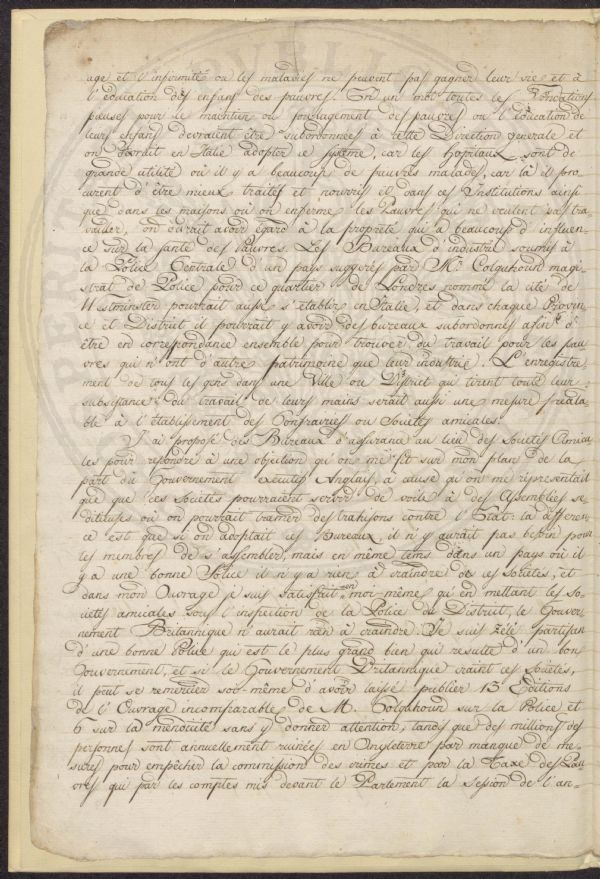 age et l'infirmité ou les maladies ne peuvent pas gagner leur vie et à
l'éducation des enfans des pauvres. En un mot toutes les Fondations
pieuses pour le maintien ou soulagement des pauvres ou l'éducation de
leurs enfans devraient être subordonnées à cette Direction generale et
on devrait en Italie adopter ce sysême, car les hopitaux sont de
grande utilité où il y a beaucoup de pauvres malades, car là il pro
curent d'être mieux traités et nourris et dans ces Institutions ainsi
que dans les maisons où on enferme les Pauvres qui ne veulent pas tra-
vailler, on devrait avoir égard à la propreté qui a beaucoup d'influen-
ce sur la santé des Pauvres. Les Bureaux d'industrie soumis à
la Police Centrale d'un pays suggerés par Mr. Colquhoun magi-
strat de Police pour ce quartier de Londres nommé la cité de
Westminster pourrait aussi s'établir en Italie, et dans chaque Provin
ce et District il pourrait y avoir des bureaux subordonnés afin d'
être en correspondance ensemble pour trouver du travail pour les pau
vres qui n'ont d'autre patrimoine que leur industrie. L'enregistre-
ment de tous les gens dans une Ville ou District qui tirent toute leur
subsistance du travail de leurs mains serait aussi une mesure préala-
ble à l'établissement des Confrairies ou Societés amicales.
J'ai proposé des Bureaux d'assurance au lieu des Societés Amica
les pour repondre à une objection qu'on me fit sur mon plan de la
part du Gouvernement executif Anglais, à cause qu'on me réprésentait
que que ces Sociétés pourraient servir de voile à des Assemblées se
ditieuses où on pourrait tramer des trahisons contre l'Etat: la differen
ce est que si on adoptait ces Bureaux, il n'y aurait pas besoin pour
les membres de s'assembler, mais en même tems dans un pays où il
y a une bonne Police il n'y a rien à craindre de ces societés, et
dans mon Ouvrage je suis satisfait en moi-même qu'en mettant les So-
cietés amicales sous l'inspection de la Police du District, le Gouver-
nement Britannique n'aurait rien à craindre. Je suis zélé partisan
d'une bonne Police qui est le plus grand bien qui resulte d'un bon
Gouvernement, et si le Gouvernement Britannique craint ces societés,
il peut se remercier soi-même d'avoir laissé publier 13 Editions
de l'Ouvrage incomparable de M. Colquhoun sur la Police et
6 sur la mendicité sans y donner attention, tandis que des millions des
personnes sont annuellement ruinées en Angleterre par manque de me-
sures pour empêcher la commission des crimes et par la Taxe des Pau-
vres qui par les comptes mis devant le Parlement la session de l'an-